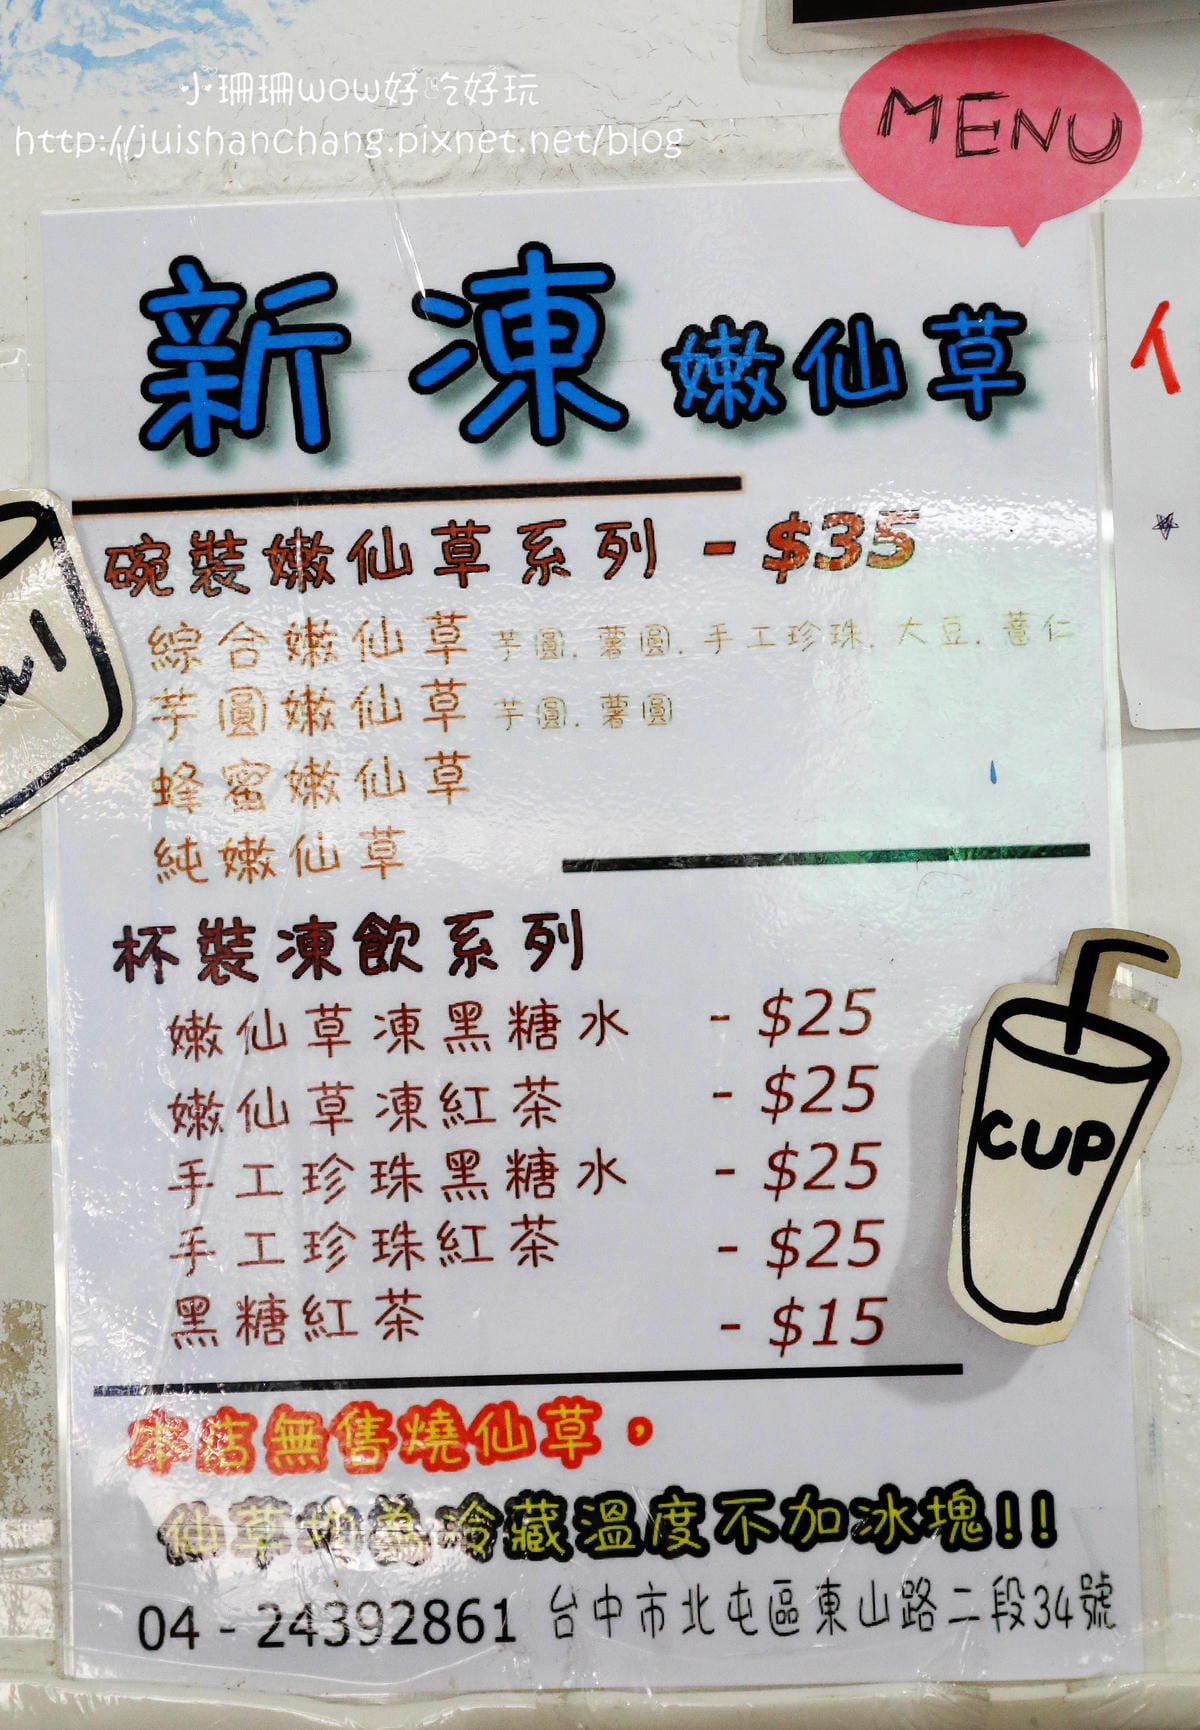 小珊珊wow好吃好玩
http://juishanchang.pixnet.net/blog
MENU
新凍 嫩仙草
碗裝嫩仙草系列 - $35
綜合嫩仙草 芋圓. 薯圓. 手工珍珠. 大豆. 薏仁
芋圓嫩仙草 芋圓. 薯圓
蜂蜜嫩仙草
純嫩仙草
杯裝凍飲系列
嫩仙草凍黑糖水 - $25
嫩仙草凍紅茶 - $25
手工珍珠黑糖水 - $25
手工珍珠紅茶 - $25
黑糖紅茶 - $15
CUP
本店無售燒仙草，
仙草均為冷藏溫度不加冰塊!!
04 - 24392861 台中市北屯區東山路二段34號